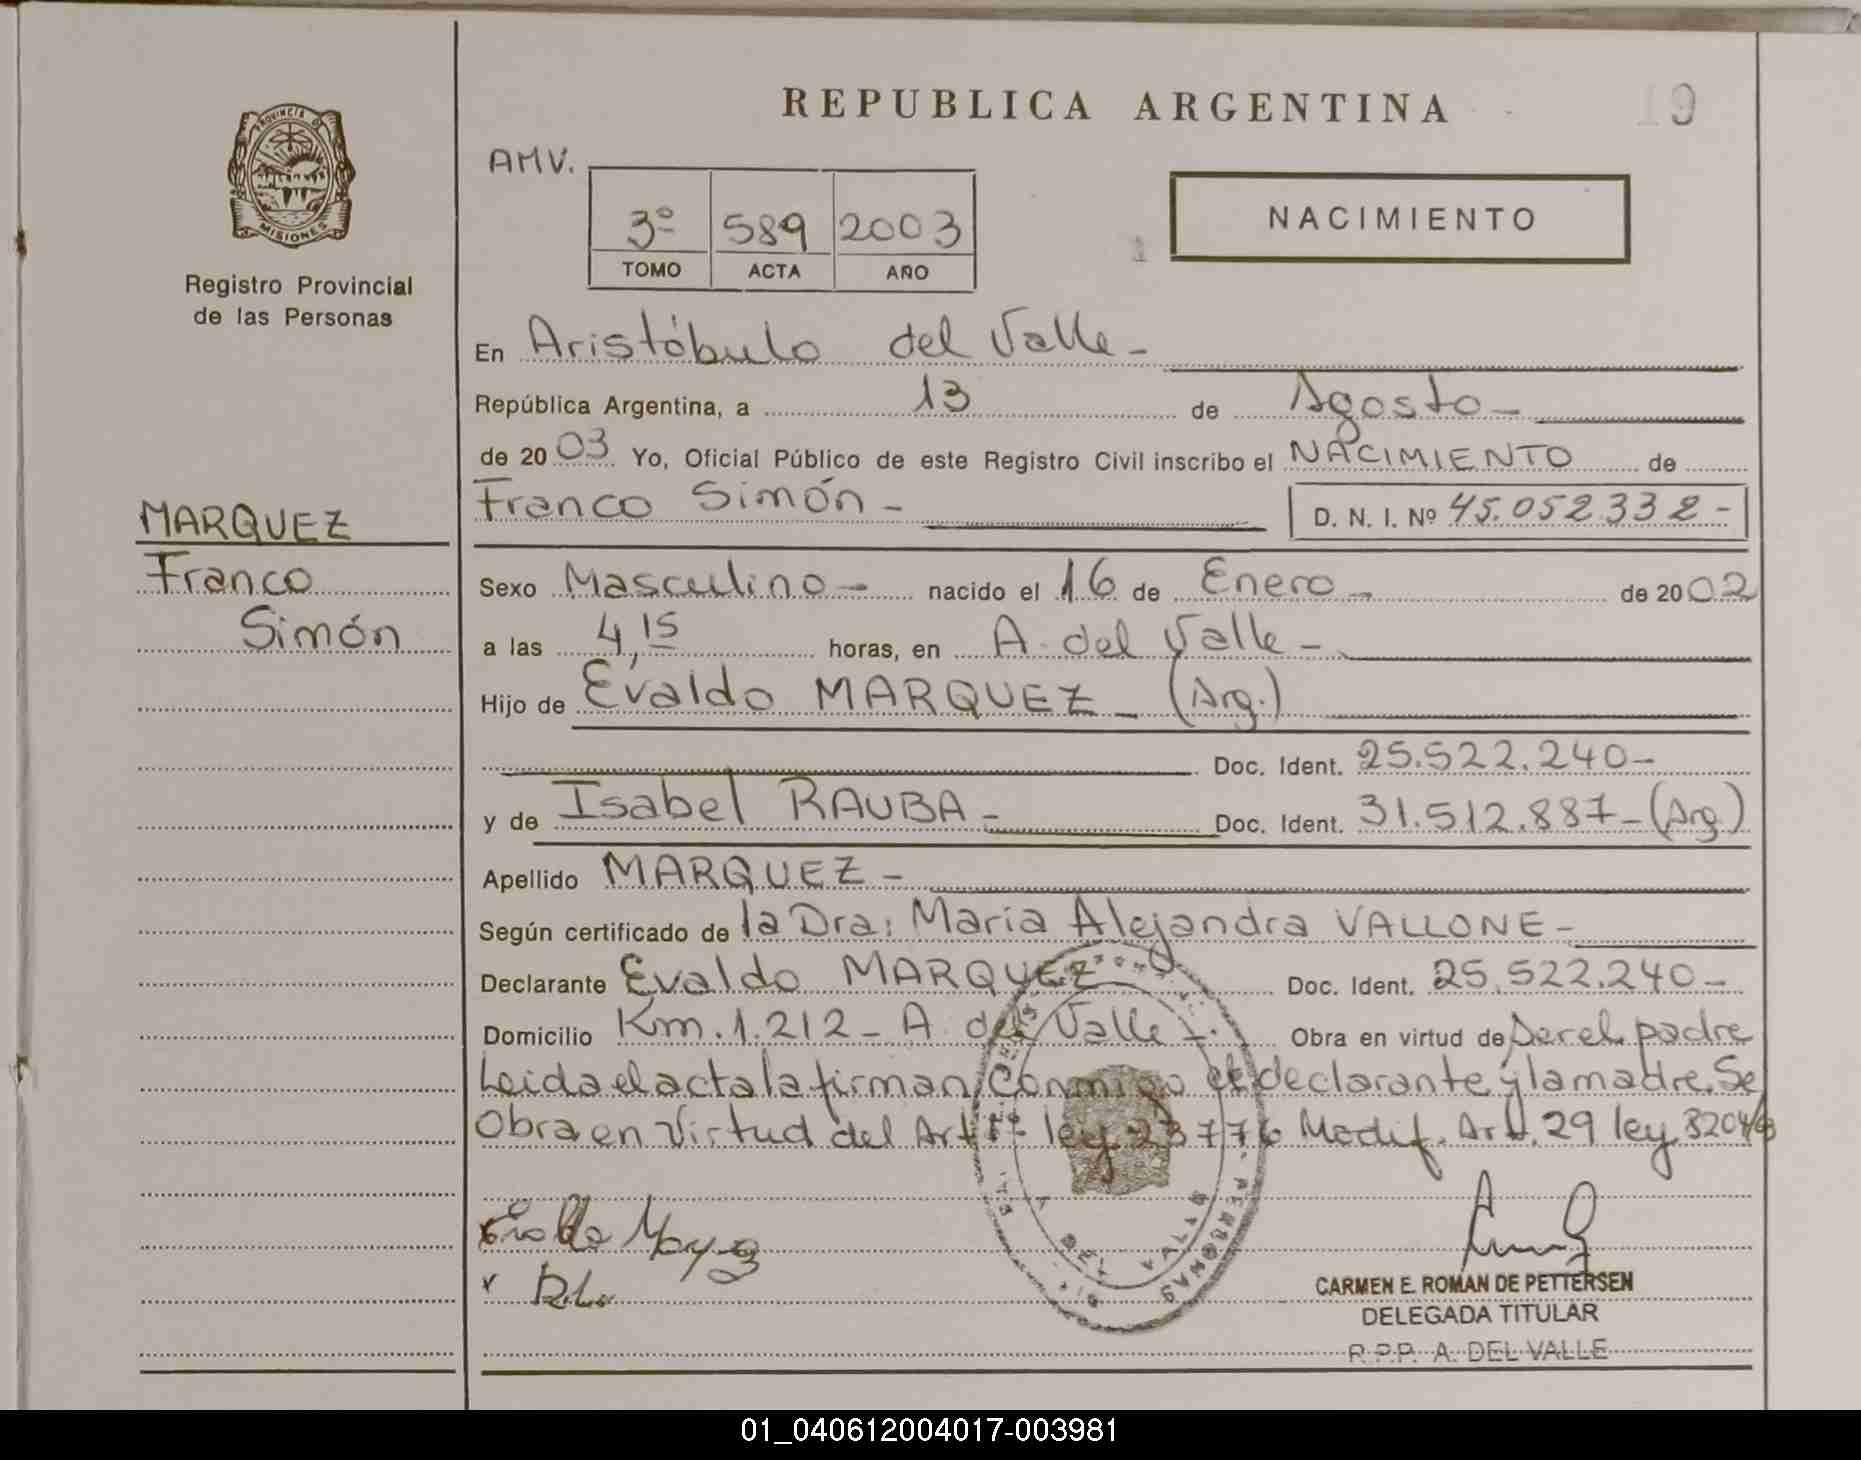 REPUBLICA ARGENTINA
19
PROVINCIA DE
MISIONES
Registro Provincial
de las Personas
AMV.
3º 589 2003
TOMO ACTA AÑO
NACIMIENTO
En Aristóbulo del Valle -
República Argentina, a 13 de Agosto -
de 20 03 Yo, Oficial Público de este Registro Civil inscribo el NACIMIENTO de
Franco Simón - D. N. I. Nº 45.052332 -
MARQUEZ
Franco
Simón
Sexo Masculino - nacido el 16 de Enero - de 2002
a las 4,15 horas, en A. del Valle -
Hijo de Evaldo MARQUEZ - (Arg.)
Doc. Ident. 25.522.240 -
y de Isabel RAUBA - Doc. Ident. 31.512.887 - (Arg.)
Apellido MARQUEZ -
Según certificado de la Dra: Maria Alejandra VALLONE -
Declarante Evaldo MARQUEZ Doc. Ident. 25.522.240 -
Domicilio Km. 1.212 - A. del Valle -. Obra en virtud de Ser el padre
Leida el acta la firman conmigo el declarante y la madre. Se
Obra en Virtud del Art 1º ley 23776 Modif. Art. 29 ley 3204/8
A DEL VALLE
PERSONAS
CARMEN E. ROMAN DE PETTERSEN
DELEGADA TITULAR
R.P.P. A. DEL VALLE
01_040612004017-003981